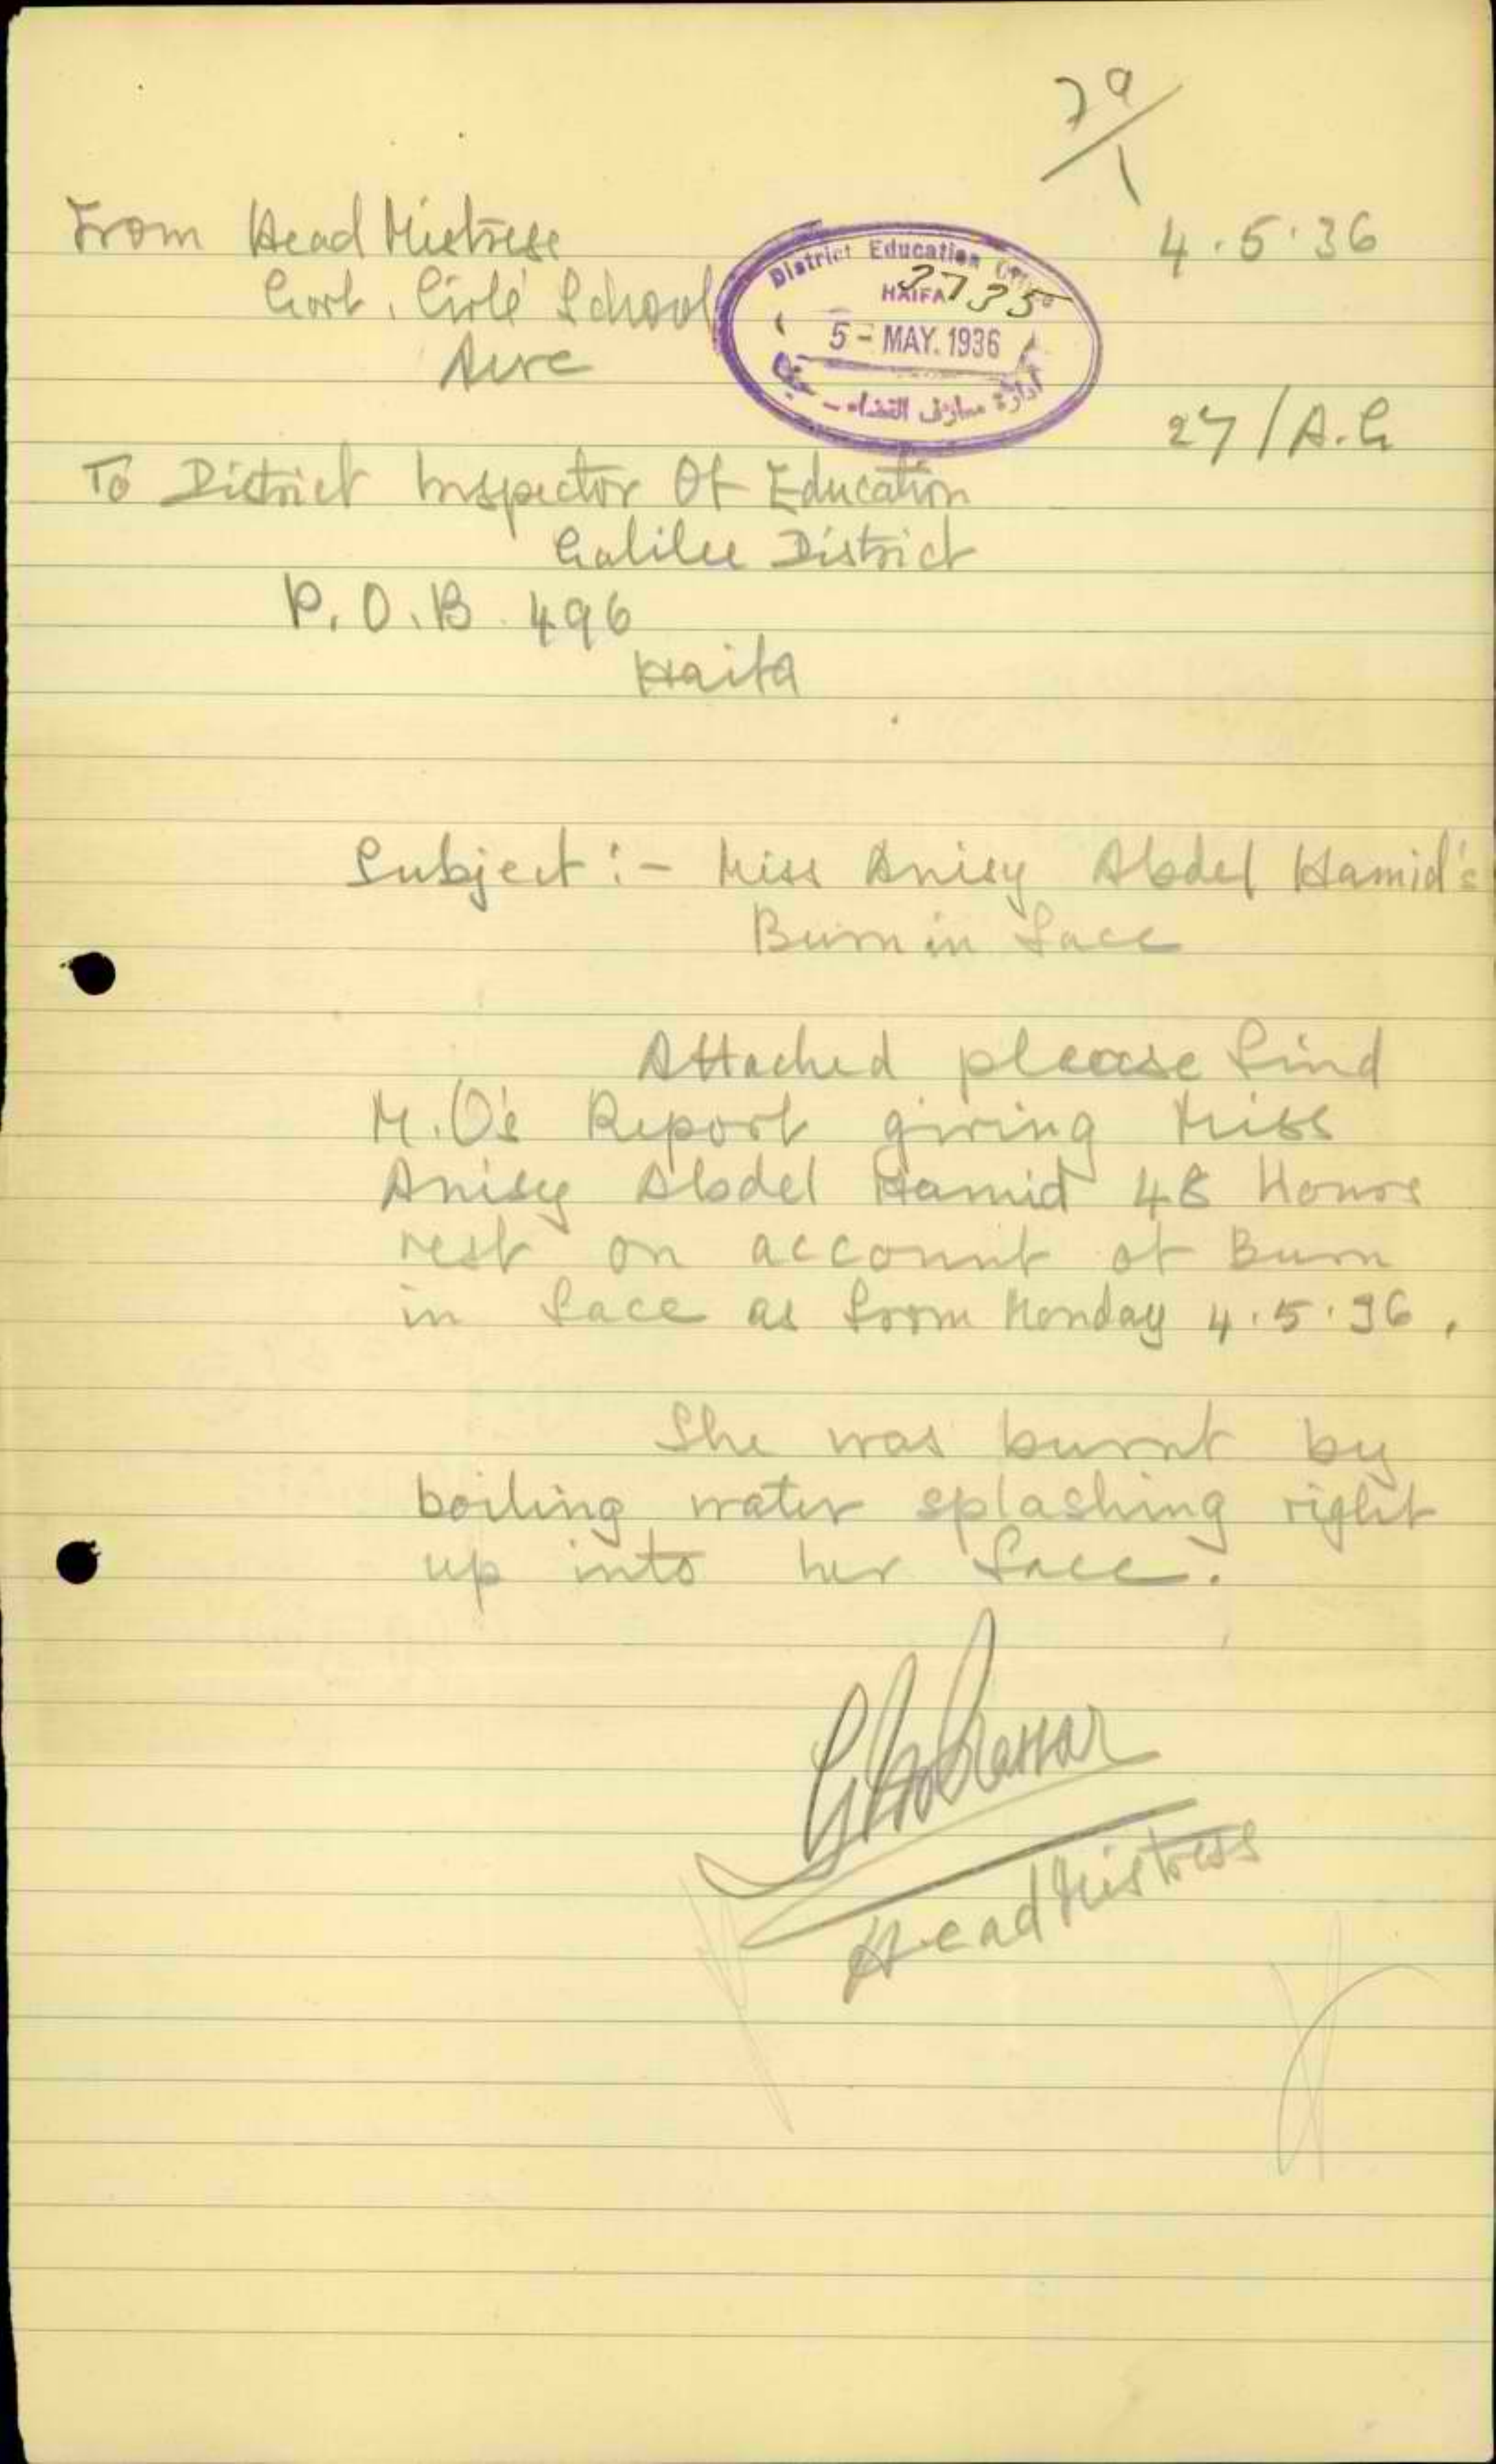 79/1
From Head Mistress
4.5.36
Govt. Girls' School
Acre
District Education Office
HAIFA
3735
5 - MAY. 1936
ادارة معارف القضاء - حيفا
27/A.G
To District Inspector Of Education
Galilee District
P.O.B. 496
Haifa
Subject :- Miss Anisy Abdel Hamid's
Burn in face
Attached please find
M.O's Report giving Miss
Anisy Abdel Hamid 48 Hours
rest on account of Burn
in face as from Monday 4.5.36.
She was burnt by
boiling water splashing right
up into her face.
Head Mistress